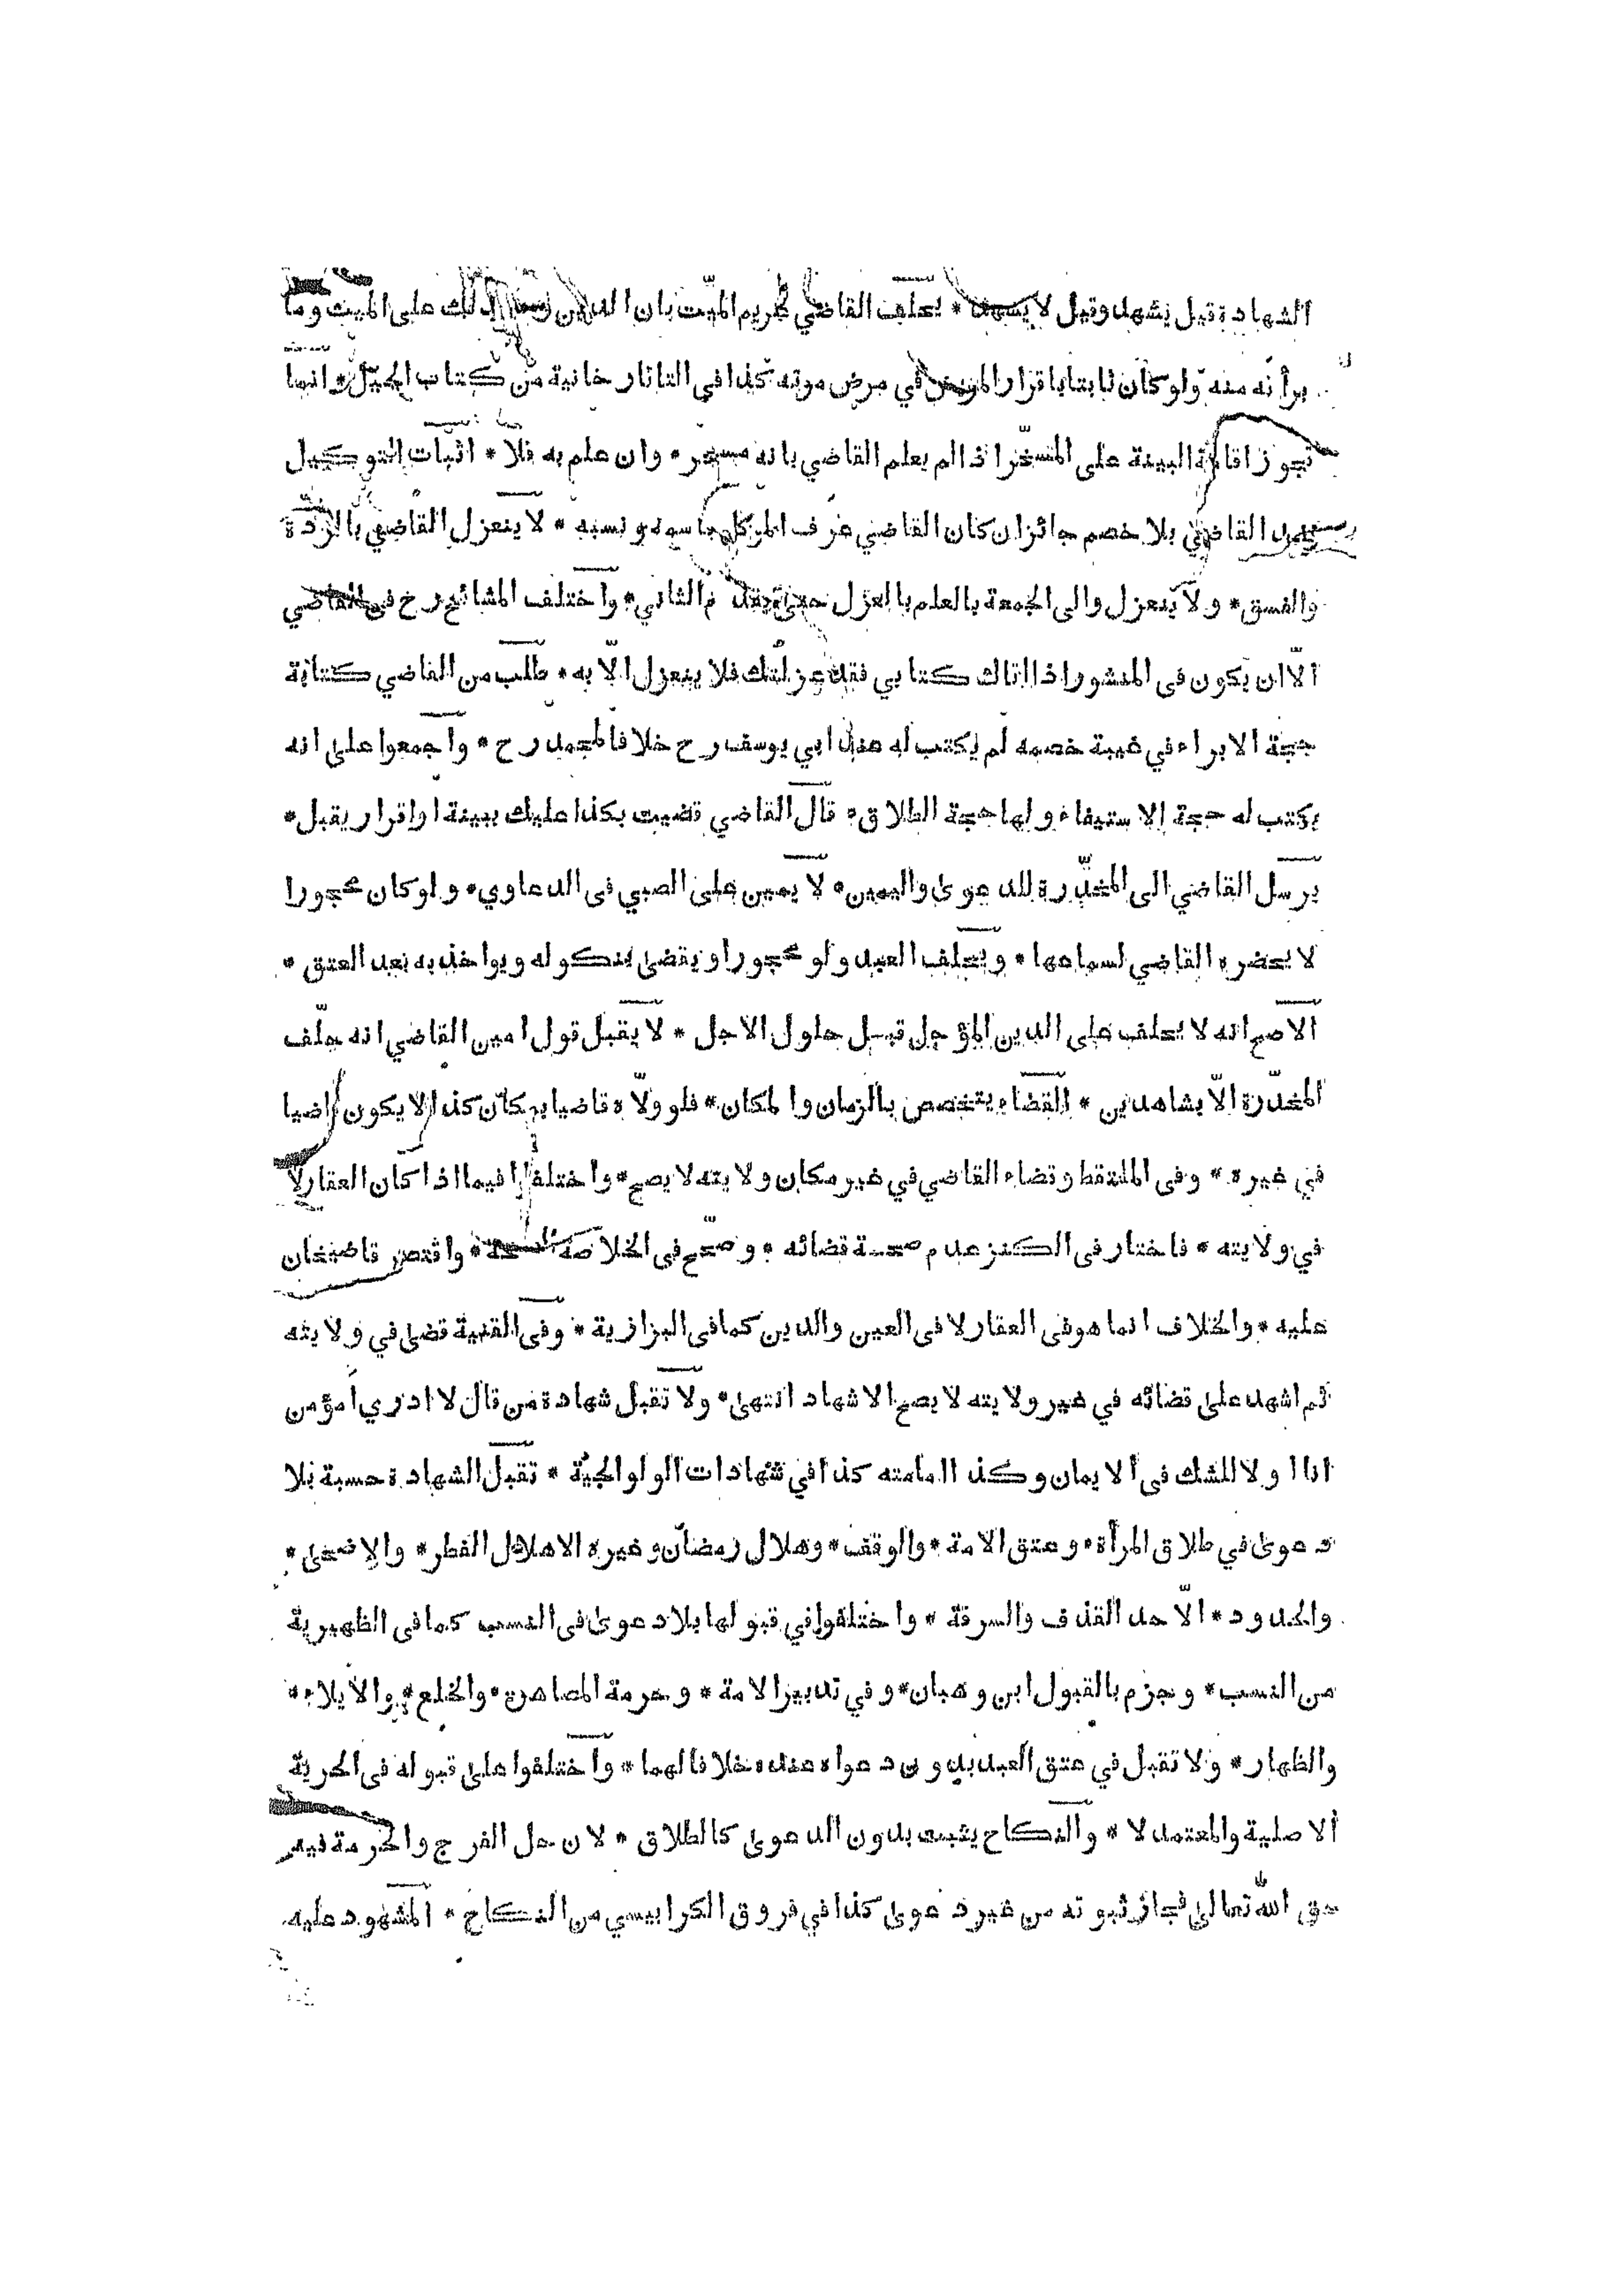 الشهادة قيل يشهد وقيل لا يشهد * يحلف القاضي غريم الميّت بان الدين ذلك على الميت وما
برأنه منه ولو كان ثابتا باقرار المريض في مرض موته كذا في التاتار خانية من كتاب الحيل * وانما
تجوز اقامة البينة على المسخّر اذا لم يعلم القاضي بانه مسخر * وان علم به فلا * اثبات التوكيل
عند القاضي بلا خصم جائز ان كان القاضي عرف الموكل باسمه و نسبه * لا ينعزل القاضي بالردة
والفسق * ولا ينعزل والى الجمعة بالعلم بالعزل حتى يقدم الثاني * واختلف المشائخ رح فى القاضي
الّا ان يكون فى المنشور اذا اتاك كتابي فقد عزلتك فلا ينعزل الّا به * طلب من القاضي كتابة
حجة الابراء في غيبة خصمه لم يكتب له عند ابي يوسف رح خلافا لمحمد رح * واجمعوا على انه
يكتب له حجة الاستيفاء ولها حجة الطلاق * قال القاضي قضيت بكذا عليك ببينة او اقرار يقبل *
يرسل القاضي الى المخدّرة للدعوى واليمين * لا يمين على الصبي فى الدعاوي * ولو كان محجورا
لا يحضره القاضي لسماعها * ويحلف العبد ولو محجورا ويقضى بنكوله ويواخذ به بعد العتق *
الاصح انه لا يحلف على الدين المؤجل قبل حلول الاجل * لا يقبل قول امين القاضي انه حلّف
المخدّرة الّا بشاهدين * القضاء يتخصص بالزمان والمكان * فلو ولّاه قاضيا بمكان كذا لا يكون قاضيا
في غيره * وفى الملتقط وقضاء القاضي في غير مكان ولايته لا يصح * واختلفوا فيما اذا كان العقار لا
في ولايته * فاختار فى الكنز عدم صحة قضائه * وصحّح فى الخلاصة الصحة * واقتصر قاضيخان
عليه * والخلاف انما هو فى العقار لا فى العين والدين كما فى البزازية * وفى القنية قضى في ولايته
ثم اشهد على قضائه في غير ولايته لا يصح الاشهاد انتهى * ولا تقبل شهادة من قال لا ادري أمؤمن
انا او لا للشك فى الايمان وكذا امامته كذا في شهادات الولوالجيّة * تقبل الشهادة حسبة بلا
دعوى في طلاق المرأة * وعتق الامة * والوقف * وهلال رمضان وغيره الا هلال الفطر * والاضحى *
والحدود * الّا حد القذف والسرقة * واختلفوا في قبولها بلا دعوى فى النسب كما فى الظهيرية
من النسب * وجزم بالقبول ابن وهبان * وفي تدبير الامة * وحرمة المصاهرة * والخلع * والايلاء *
والظهار * ولا تقبل في عتق العبد بدون دعواه عنده خلافا لهما * واختلفوا على قبوله فى الحرية
الاصلية والمعتمد لا * والنكاح يثبت بدون الدعوى كالطلاق * لان حل الفرج والحرمة فيه
حق اللّه تعالى فجاز ثبوته من غير دعوى كذا في فروق الكرابيسي من النكاح * المشهود عليه